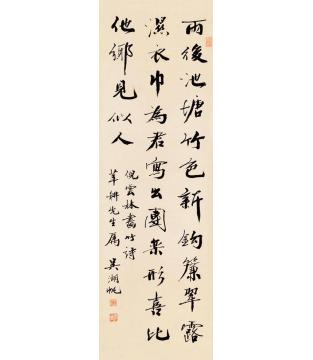 雨後池塘竹色新鈎簾翠露
濕衣巾為君寫出團欒形喜比
他鄉見似人
倪雲林畫竹詩
先生屬 吳湖帆